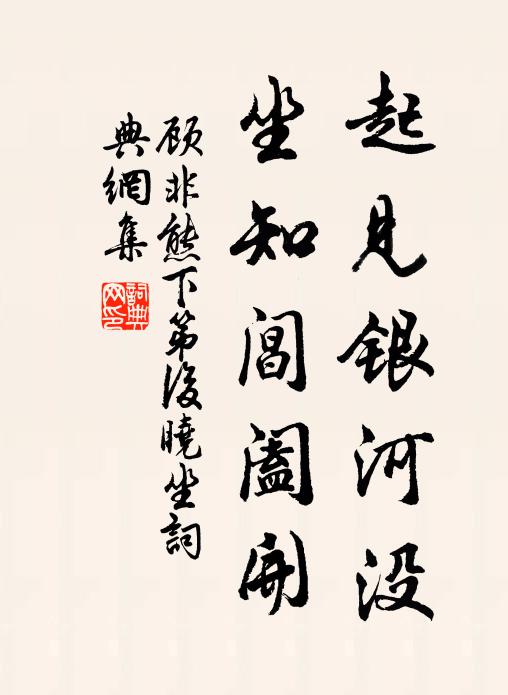 起見銀河没
坐知閶闔開
顾非熊下第後曉坐詞
典網集
詞典网印